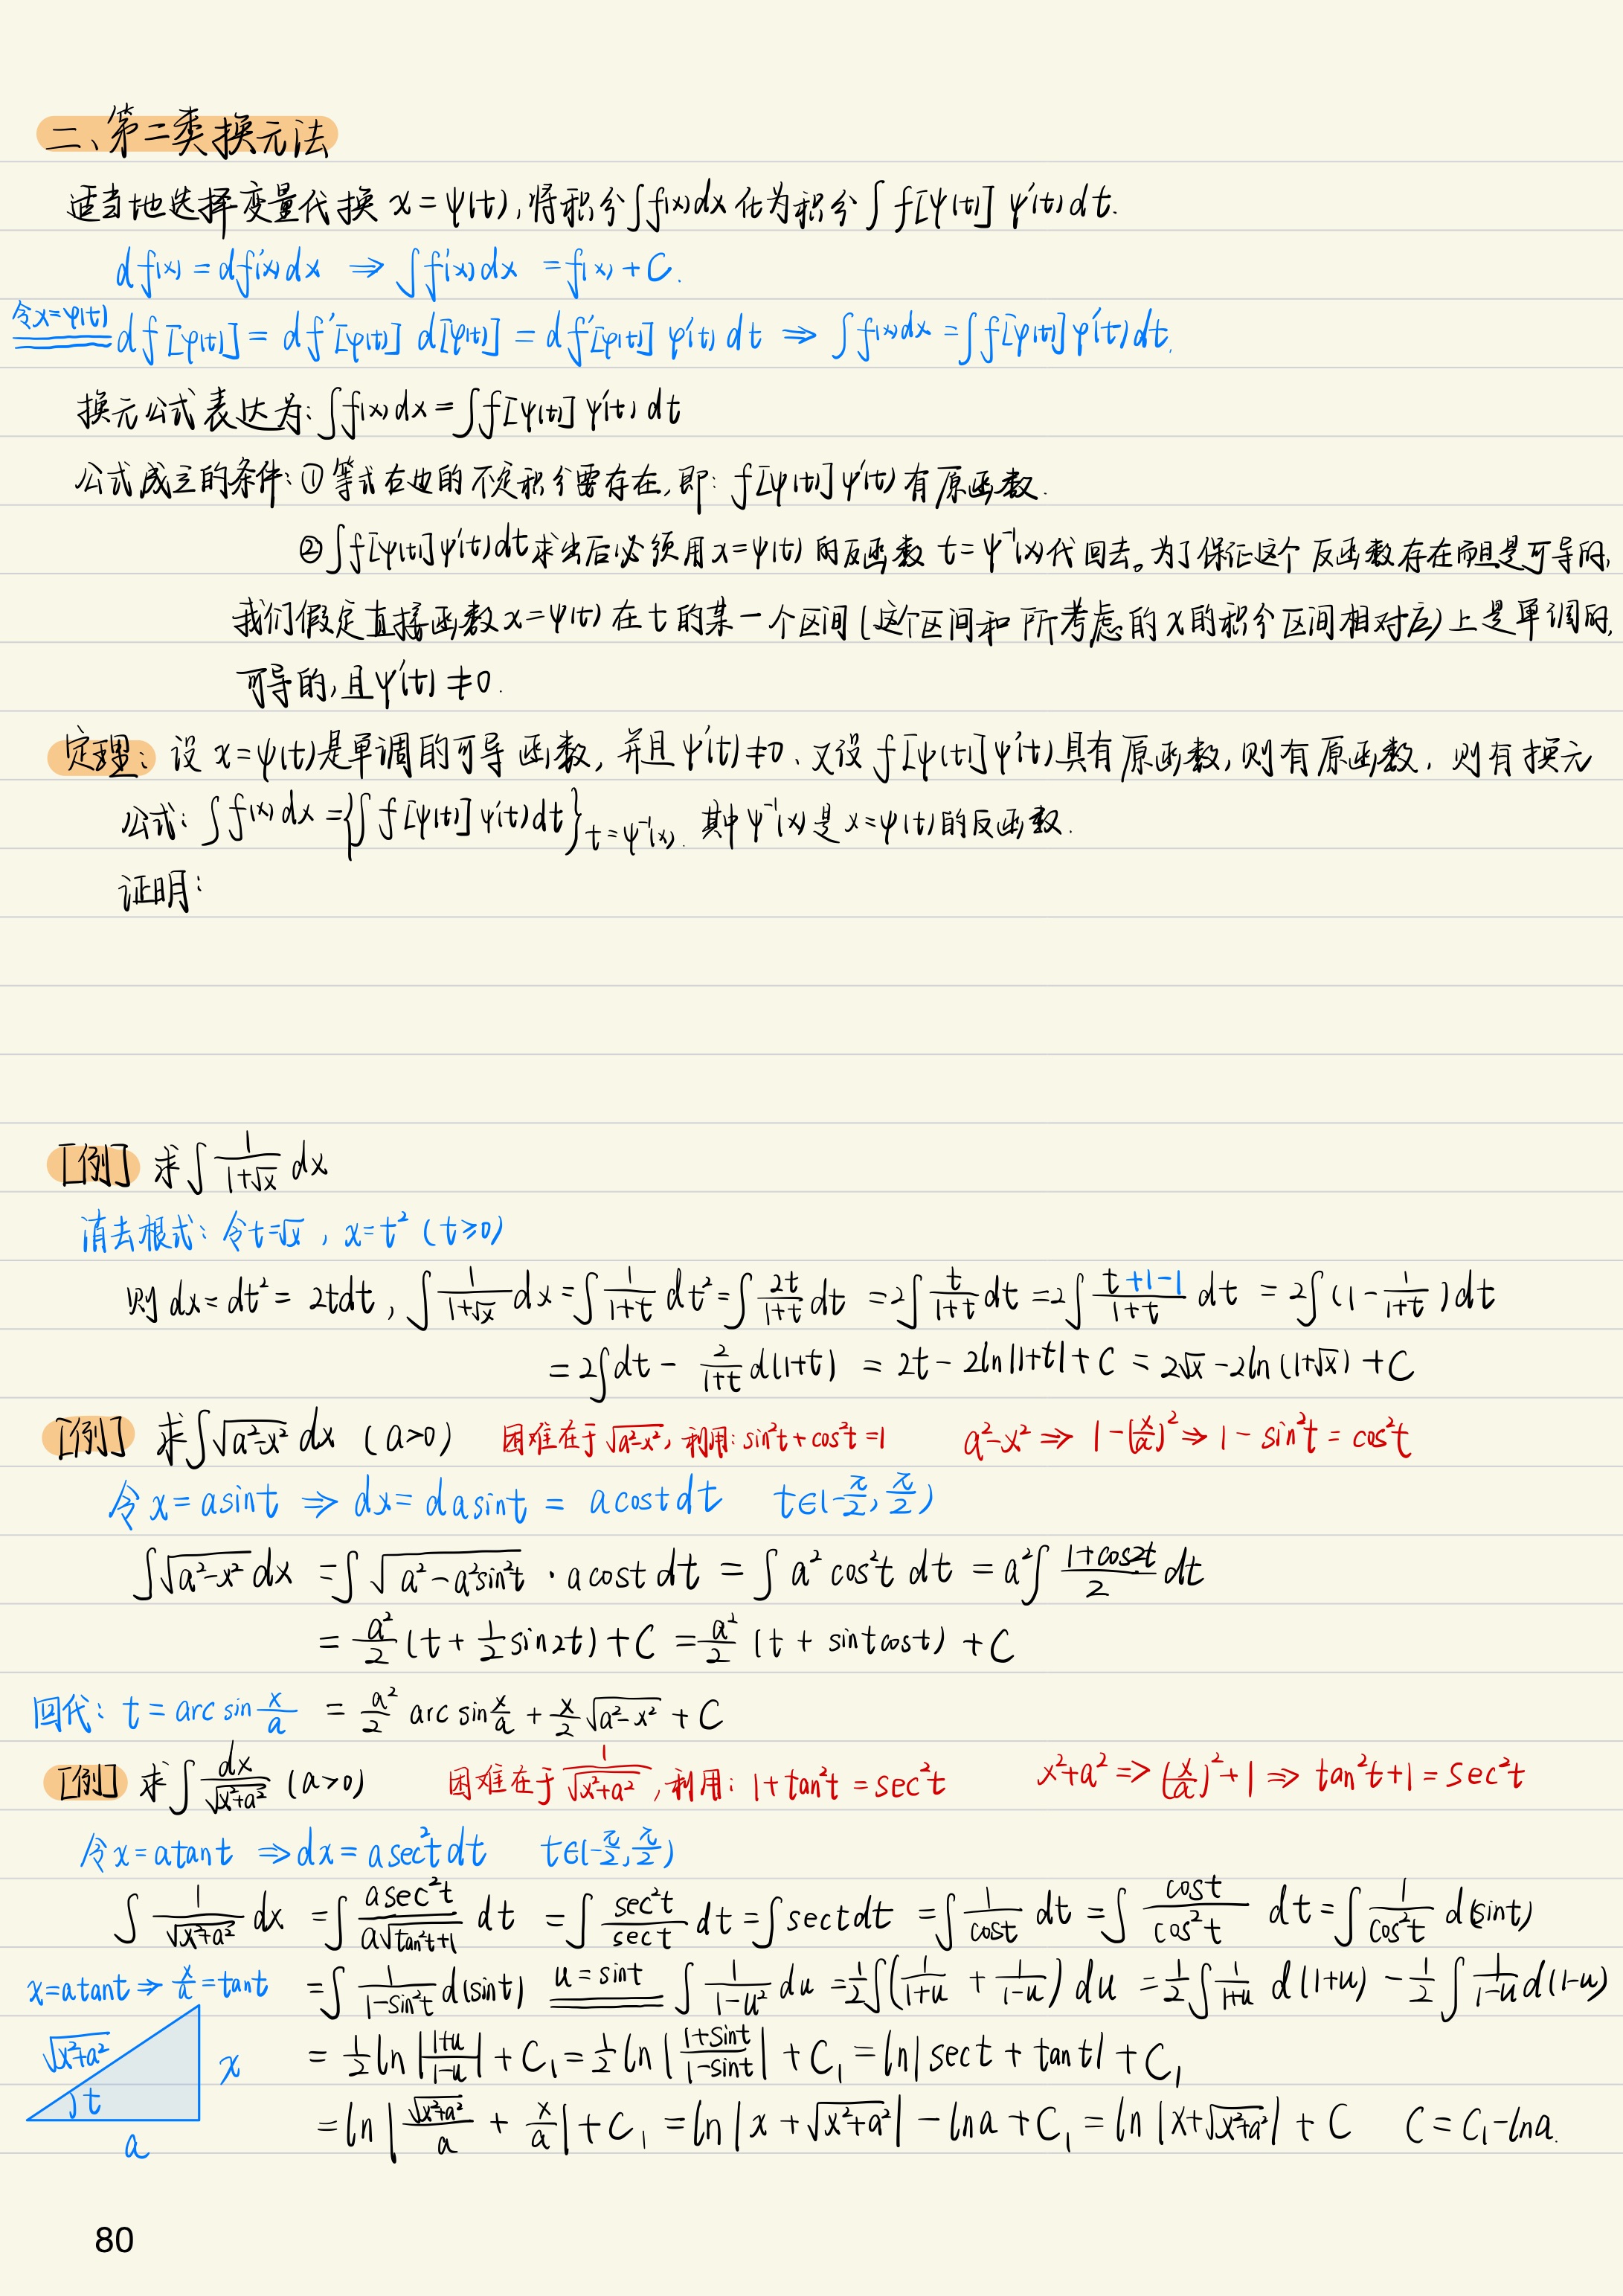 二、第二类换元法
适当地选择变量代换 x = ψ(t), 将积分∫f(x)dx 化为积分∫ f[ψ(t)] ψ'(t) dt.
d f(x) = df'(x) dx ⇒ ∫f'(x) dx = f(x) + C.
令x=φ(t) d f[φ(t)] = d f'[φ(t)] d[φ(t)] = d f'[φ(t)] φ'(t) dt ⇒ ∫f(x)dx = ∫f[φ(t)]φ'(t)dt.
换元公式表达为: ∫f(x)dx = ∫f[ψ(t)] ψ'(t) dt
公式成立的条件: ① 等式右边的不定积分要存在, 即: f[ψ(t)]ψ'(t) 有原函数.
②∫f[ψ(t)]ψ'(t)dt求出后必须用x=ψ(t) 的反函数 t=ψ⁻¹(x)代回去。为了保证这个反函数存在而且是可导的,
我们假定直接函数x=ψ(t) 在 t 的某一个区间(这个区间和所考虑的x的积分区间相对应)上是单调的,
可导的, 且ψ'(t) ≠0.
定理: 设 x=ψ(t)是单调的可导函数, 并且ψ'(t)≠0、又设 f[ψ(t)]ψ'(t)具有原函数, 则有原函数, 则有换元
公式: ∫f(x)dx = {∫ f[ψ(t)] ψ'(t)dt}t=ψ⁻¹(x). 其中ψ⁻¹(x)是 x=ψ(t)的反函数.
证明:
[例] 求∫ 1/(1+√x) dx
消去根式: 令t=√x , x=t² (t≥0)
则 dx=dt² = 2tdt, ∫ 1/(1+√x) dx = ∫ 1/(1+t) dt² = ∫ 2t/(1+t) dt = 2∫ t/(1+t) dt = 2∫ (t+1-1)/(1+t) dt = 2∫(1 - 1/(1+t))dt
= 2∫dt - 2/(1+t) d(1+t) = 2t - 2ln|1+t| + C = 2√x - 2ln(1+√x) + C
[例] 求∫√(a²-x²) dx (a>0) 困难在于√(a²-x²), 利用: sin²t+cos²t=1 a²-x² ⇒ 1-(x/a)² ⇒ 1-sin²t = cos²t
令 x=asint ⇒ dx=dasint = acostdt t∈(-π/2, π/2)
∫√(a²-x²) dx = ∫√(a²-a²sin²t) · acost dt = ∫ a²cos²t dt = a²∫ (1+cos2t)/2 dt
= a²/2 (t + 1/2 sin2t) + C = a²/2 (t + sintcost) + C
回代: t = arcsin x/a = a²/2 arcsin x/a + x/2 √(a²-x²) + C
[例] 求∫ dx/√(x²+a²) (a>0) 困难在于 1/√(x²+a²), 利用: 1+tan²t = sec²t x²+a² => (x/a)²+1 ⇒ tan²t+1 = sec²t
令x=atant ⇒ dx=asec²tdt t∈(-π/2, π/2)
∫ 1/√(x²+a²) dx = ∫ asec²t/(a√(tan²t+1)) dt = ∫ sec²t/sect dt = ∫sectdt = ∫ 1/cost dt = ∫ cost/cos²t dt = ∫ 1/cos²t d(sint)
x=atant ⇒ x/a=tant = ∫ 1/(1-sin²t) d(sint) u=sint ∫ 1/(1-u²) du = 1/2∫(1/(1+u) + 1/(1-u)) du = 1/2∫ 1/(1+u) d(1+u) - 1/2∫ 1/(1-u) d(1-u)
√(x²+a²) x = 1/2 ln|(1+u)/(1-u)| + C₁ = 1/2 ln|(1+sint)/(1-sint)| + C₁ = ln|sect+tant| + C₁
t = ln|√(x²+a²)/a + x/a| + C₁ = ln|x+√(x²+a²)| - lna + C₁ = ln|x+√(x²+a²)| + C C=C₁-lna.
a
80